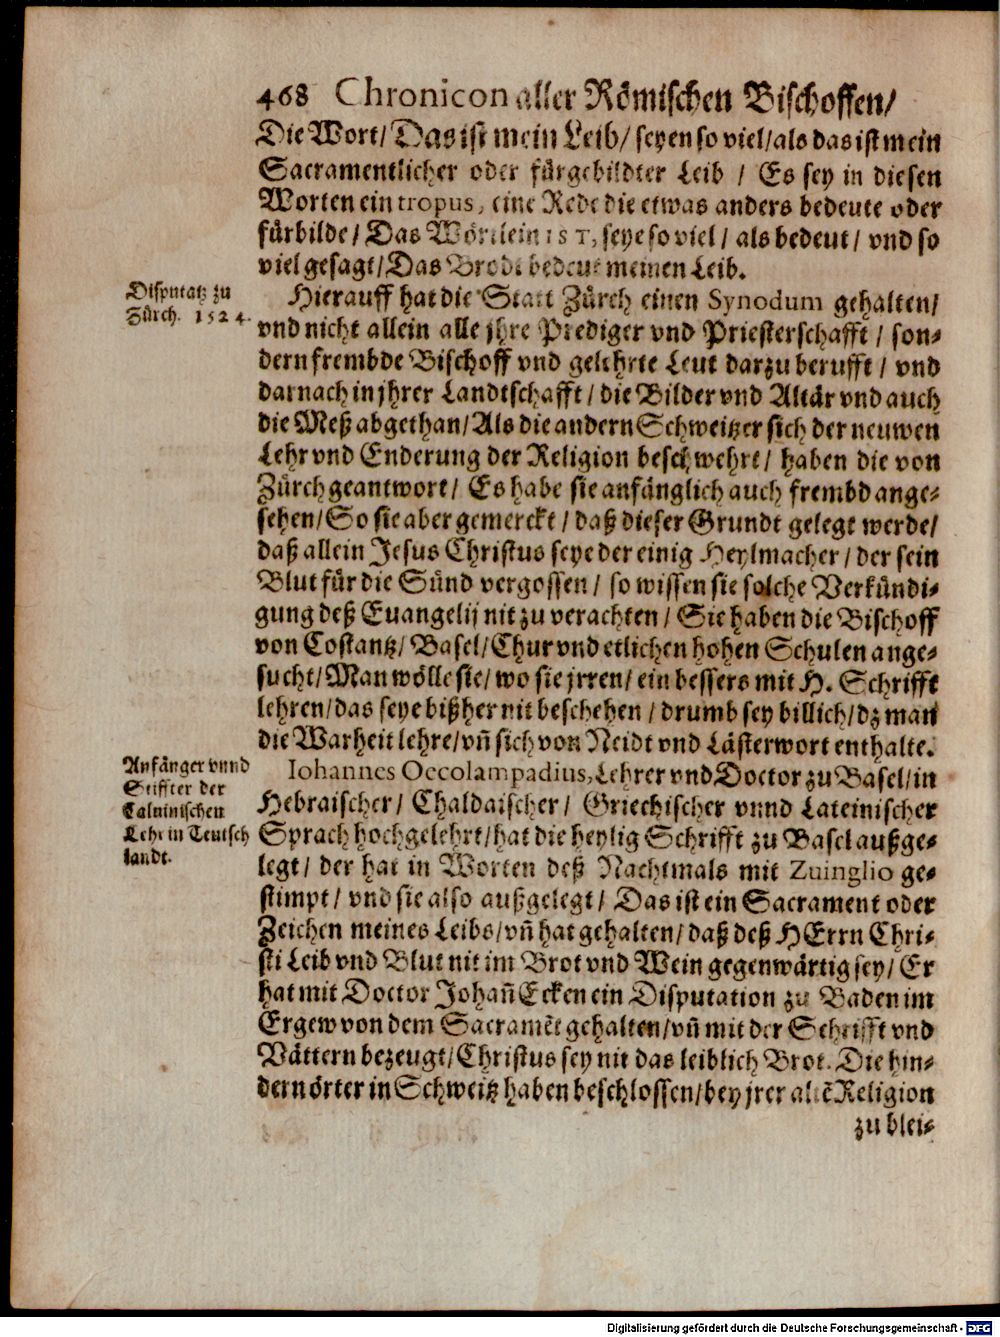 468 Chronicon aller Römischen Bischoffen/
Die Wort/ Das ist mein Leib/ seyen so viel/ als das ist mein
Sacramentlicher oder fürgebildter Leib / Es sey in diesen
Worten ein tropus, eine Rede die etwas anders bedeute oder
fürbilde/ Das Wörtlein IST, seye so viel / als bedeut/ vnd so
viel gesagt/ Das Brodt bedeut meinen Leib.
Disputatz zu
Zürch. 1524.
Hierauff hat die Statt Zürch einen Synodum gehalten/
vnd nicht allein alle jhre Prediger vnd Priesterschafft / son-
dern frembde Bischoff vnd gelehrte Leut darzu berufft / vnd
darnach in jhrer Landtschafft / die Bilder vnd Altär vnd auch
die Meß abgethan/ Als die andern Schweitzer sich der neuwen
Lehr vnd Enderung der Religion beschwehrt/ haben die von
Zürch geantwort/ Es habe sie anfänglich auch frembd ange-
sehen/ So sie aber gemerckt / daß dieser Grundt gelegt werde/
daß allein Jesus Christus seye der einig Heylmacher / der sein
Blut für die Sünd vergossen / so wissen sie solche Verkündi-
gung deß Euangelij nit zu verachten / Sie haben die Bischoff
von Costantz/ Basel/ Chur vnd etlichen hohen Schulen ange-
sucht/ Man wölle sie/ wo sie jrren/ ein bessers mit H. Schrifft
lehren/ das seye bißher nit beschehen / drumb sey billich/ dz man
die Warheit lehre/ vñ sich von Neidt vnd Lästerwort enthalte.
Anfänger vnnd
Stiffter der
Caluinischen
Lehr in Teutsch
landt.
Iohannes Oecolampadius, Lehrer vnd Doctor zu Basel/ in
Hebraischer/ Chaldaischer/ Griechischer vnnd Lateinischer
Sprach hochgelehrt/ hat die heylig Schrifft zu Basel außge-
legt/ der hat in Worten deß Nachtmals mit Zuinglio ge-
stimpt/ vnd sie also außgelegt/ Das ist ein Sacrament oder
Zeichen meines Leibs/ vñ hat gehalten/ daß deß HErrn Chri-
sti Leib vnd Blut nit im Brot vnd Wein gegenwärtig sey/ Er
hat mit Doctor Johañ Ecken ein Disputation zu Baden im
Ergew von dem Sacramẽt gehalten/ vñ mit der Schrifft vnd
Vättern bezeugt/ Christus sey nit das leiblich Brot. Die hin-
dern örter in Schweitz haben beschlossen/ bey jrer altẽ Religion
zu blei-
Digitalisierung gefördert durch die Deutsche Forschungsgemeinschaft - DFG